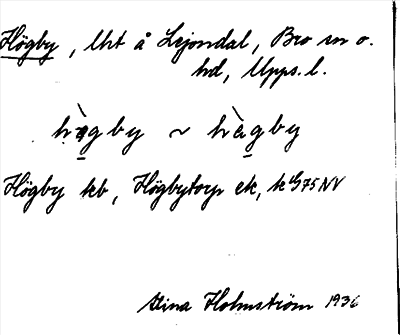 Högby, Uht å Lejondal, Bro sn o.
hd, Upps. l.
hø̀gby ~ hàgby
Högby kb, Högbytorp ek, k 75 NV
Stina Holmström 1936